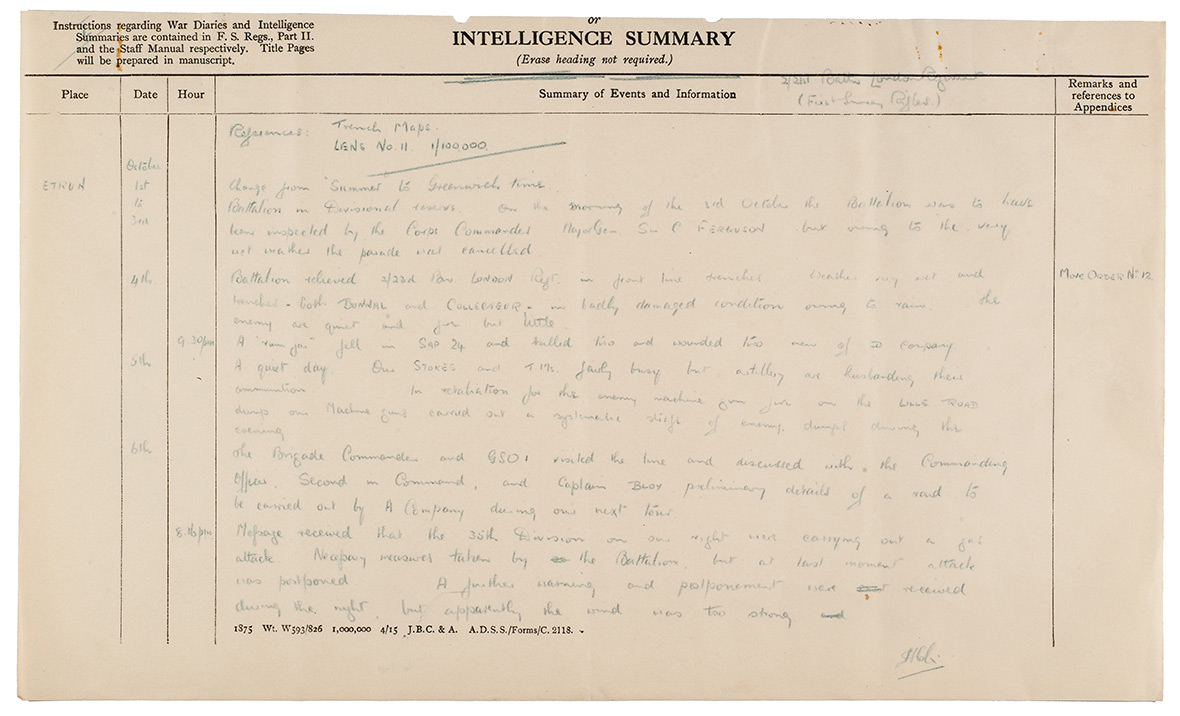 Instructions regarding War Diaries and Intelligence
Summaries are contained in F. S. Regs., Part II.
and the Staff Manual respectively. Title Pages
will be prepared in manuscript.
or
INTELLIGENCE SUMMARY
(Erase heading not required.)
2/21st Battn London Regiment
(First Surrey Rifles.)
Place Date Hour Summary of Events and Information Remarks and references to Appendices
References: Trench Maps.
LENS No. 11. 1/100000
October
ETRUN 1st Change from Summer to Greenwich time.
to Battalion in Divisional reserve. On the morning of the 3rd October the Battalion was to have
3rd been inspected by the Corps Commander Major Gen Sir C FERGUSON but owing to the very
wet weather the parade was cancelled.
4th Battalion relieved 2/23rd Bn. LONDON Regt. in front line trenches. Weather very wet and Move ORDER No 12
trenches - both BONNAL and COLLECTEUR - in badly damaged condition owing to rain. The
enemy are quiet and fire but little.
9.30pm A "rum jar" fell in SAP 24 and killed two and wounded two men of D company
5th A quiet day. Our STOKES and T Ms. fairly busy but artillery are husbanding their
ammunition In retaliation for the enemy machine gun fire on the LILLE ROAD
dump our Machine guns carried out a systematic strafe of enemy dumps during the
evening
6th The Brigade Commander and GSO1 visited the line and discussed with the Commanding
Officer, Second in Command, and Captain preliminary details of a raid to
be carried out by A Company during our next tour.
8.16pm Message received that the 35th Division on our right were carrying out a gas
attack. Necessary measures taken by the Battalion, but at last moment attack
was postponed. A further warning and postponement were received
during the night, but apparently the wind was too strong and
1875 Wt. W593/826 1,000,000 4/15 J.B.C. & A. A.D.S.S./Forms/C. 2118.